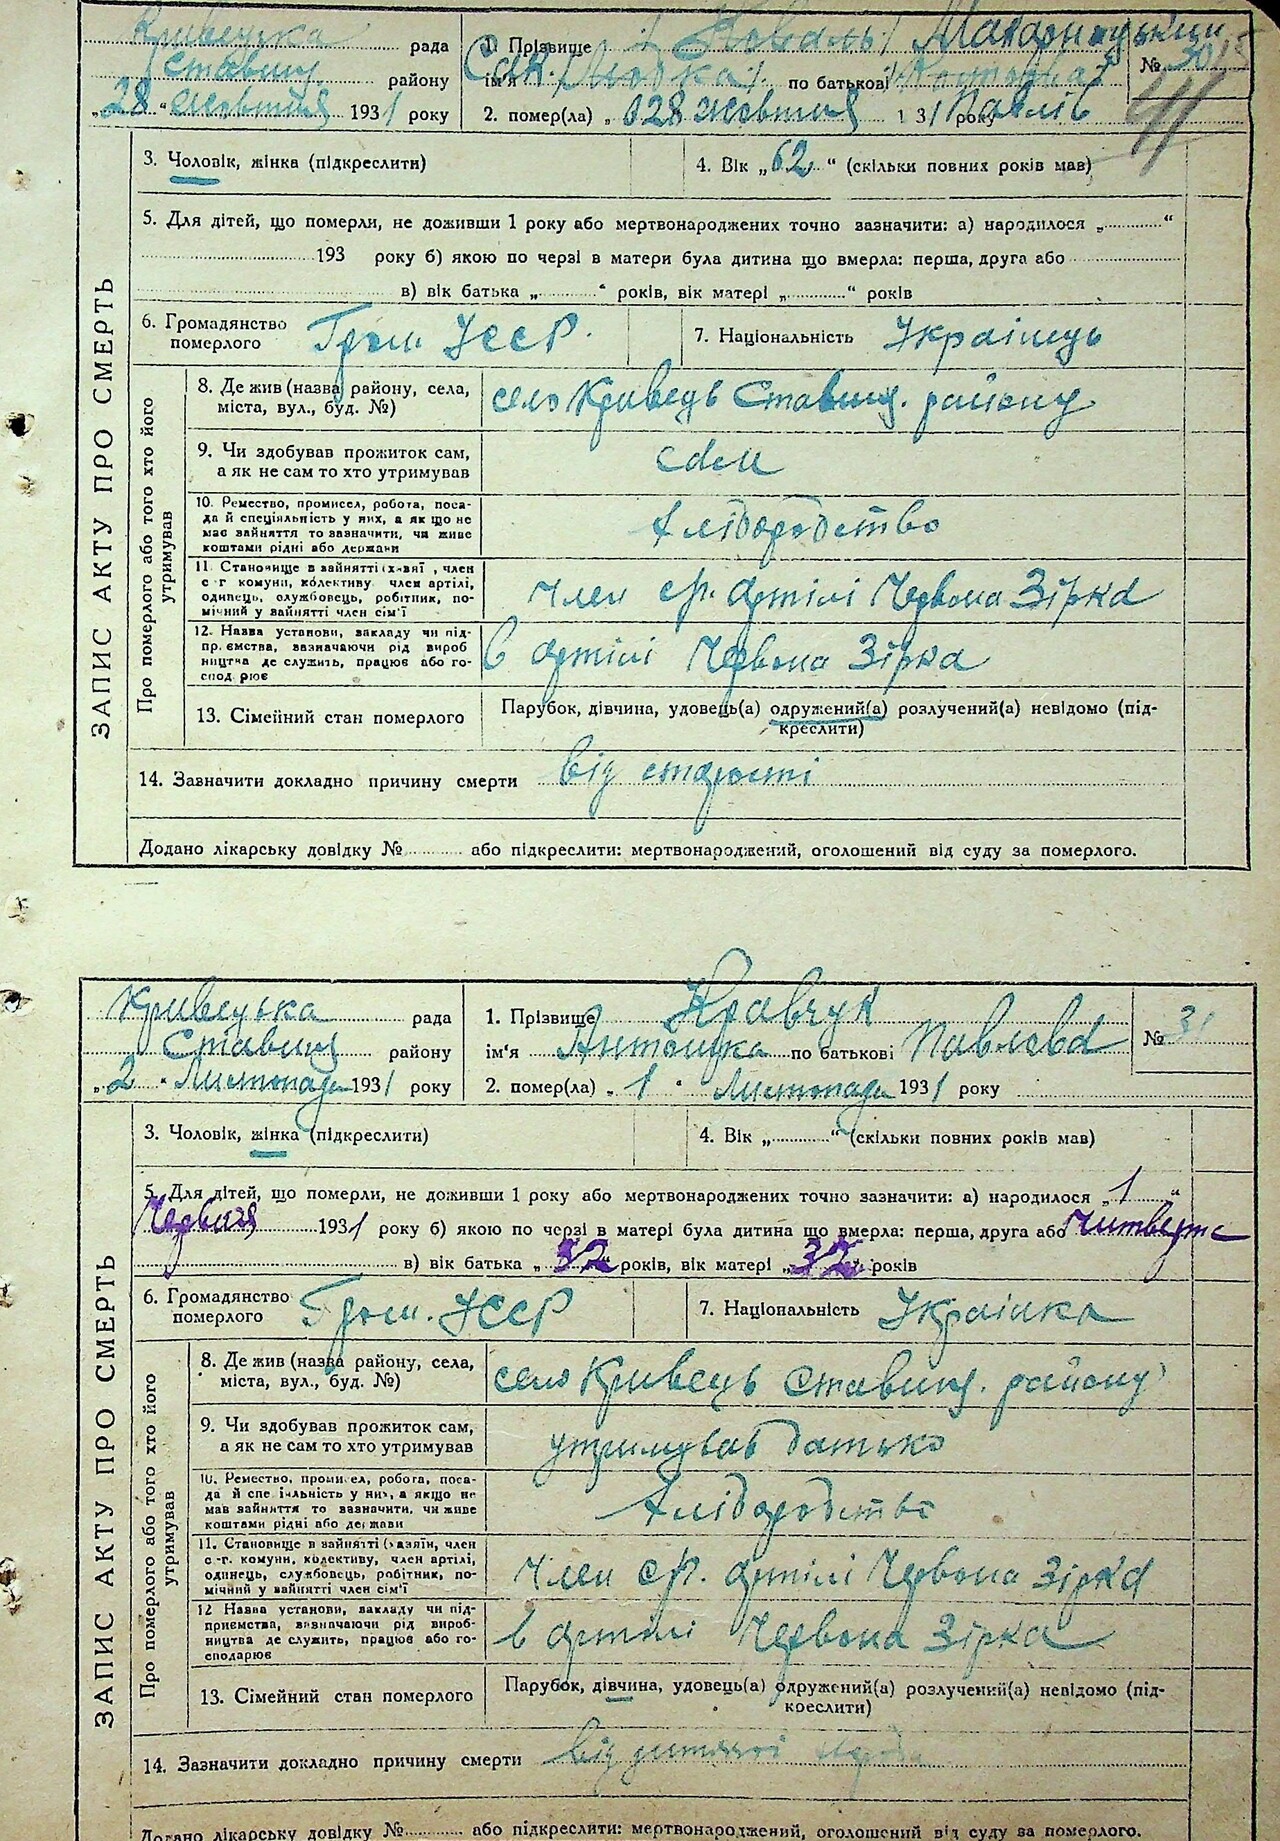 Кривецька рада
Ставищ. району
„28“ жовтня 1931 року
1. Прізвище /Коваль/
ім'я по батькові
2. помер(ла) „28 жовтня 1931 року Павлів
№ 30
3. Чоловік, жінка (підкреслити)
4. Вік „62“ (скільки повних років мав)
5. Для дітей, що померли, не доживши 1 року або мертвонароджених точно зазначити: а) народилося „............“
193 року б) якою по черзі в матери була дитина що вмерла: перша, друга або
в) вік батька „............“ років, вік матері „............“ років
6. Громадянство
померлого
Гром. УССР.
7. Національність Українець
ЗАПИС АКТУ ПРО СМЕРТЬ
Про померлого або того хто його
утримував
8. Де жив (назва району, села,
міста, вул., буд. №)
село Кривець Ставищ. району
9. Чи здобував прожиток сам,
а як не сам то хто утримував
сам
10. Ремество, промисел, робота, поса-
да й спеціяльність у них, а як що не
має зайняття то зазначити, чи живе
коштами рідні або держави
хліборобство
11 Становище в зайнятті (х-зяї , член
с-г комуни, колективу член артілі,
одинець, службовець, робітник, по-
мічний у зайнятті член сім'ї
член ср. артілі Червона Зірка
12. Назва установи, закладу чи під-
пр. ємства, зазначаючи рід вироб
ництва де служить, працює або го-
спод рює
в артілі Червона Зірка
13. Сімейний стан померлого
Парубок, дівчина, удовець(а) одружений(а) розлучений(а) невідомо (під-
креслити)
14. Зазначити докладно причину смерти від старості
Додано лікарську довідку №............ або підкреслити: мертвонароджений, оголошений від суду за померлого.
Кривецька рада
Ставищ. району
„2“ Листопада 1931 року
1. Прізвище Кравчук
ім'я Антошка по батькові Павлєва
2. помер(ла) „1“ Листопада 1931 року
№ 31
3. Чоловік, жінка (підкреслити)
4. Вік „............“ (скільки повних років мав)
5. Для дітей, що померли, не доживши 1 року або мертвонароджених точно зазначити: а) народилося „1“
Червня 1931 року б) якою по черзі в матері була дитина що вмерла: перша, друга або Читверта
в) вік батька „32“ років, вік матері „32“ років
6. Громадянство
померлого
Гром. УССР
7. Національність Українка
ЗАПИС АКТУ ПРО СМЕРТЬ
Про померлого або того хто його
утримував
8. Де жив (назва району, села,
міста, вул., буд. №)
село Кривець Ставищ. району
9. Чи здобував прожиток сам,
а як не сам то хто утримував
утримував батько
10. Ремество, промисел, робота, поса-
да й спеціальність у них, а якщо не
мав зайняття то зазначити, чи живе
коштами рідні або держави
хліборобство
11. Становище в зайнятті (хазяїн, член
с-г. комуни, колективу, член артілі,
одинець, службовець, робітник, по-
мічний у зайнятті член сім'ї
член ср. артілі Червона Зірка
12 Назва установи, закладу чи під-
приємства, зазначаючи рід вироб-
ництва де служить, працює або го-
сподарює
в артілі Червона Зірка
13. Сімейний стан померлого
Парубок, дівчина, удовець(а) одружений(а) розлучений(а) невідомо (під-
креслити)
14. Зазначити докладно причину смерти від дитячої
Додано лікарську довідку №............ або підкреслити: мертвонароджений, оголошений від суду за померлого.